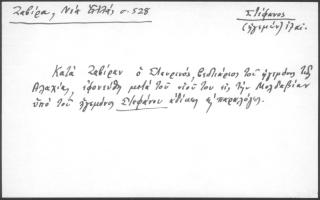 Ζαβίρα, Νέα Ἑλλάς σ. 528
Στέφανος
(ἡγεμών)
Κατὰ Ζαβίραν ὁ Σταυρινός, βεστιάριος τοῦ ἡγεμόνος τῆς
Βλαχίας, ἐφονεύθη μετὰ τοῦ υἱοῦ του εἰς τὴν Μολδαβίαν
ὑπὸ τοῦ ἡγεμόνος Στεφάνου ἀδίκως κ παραλόγως.